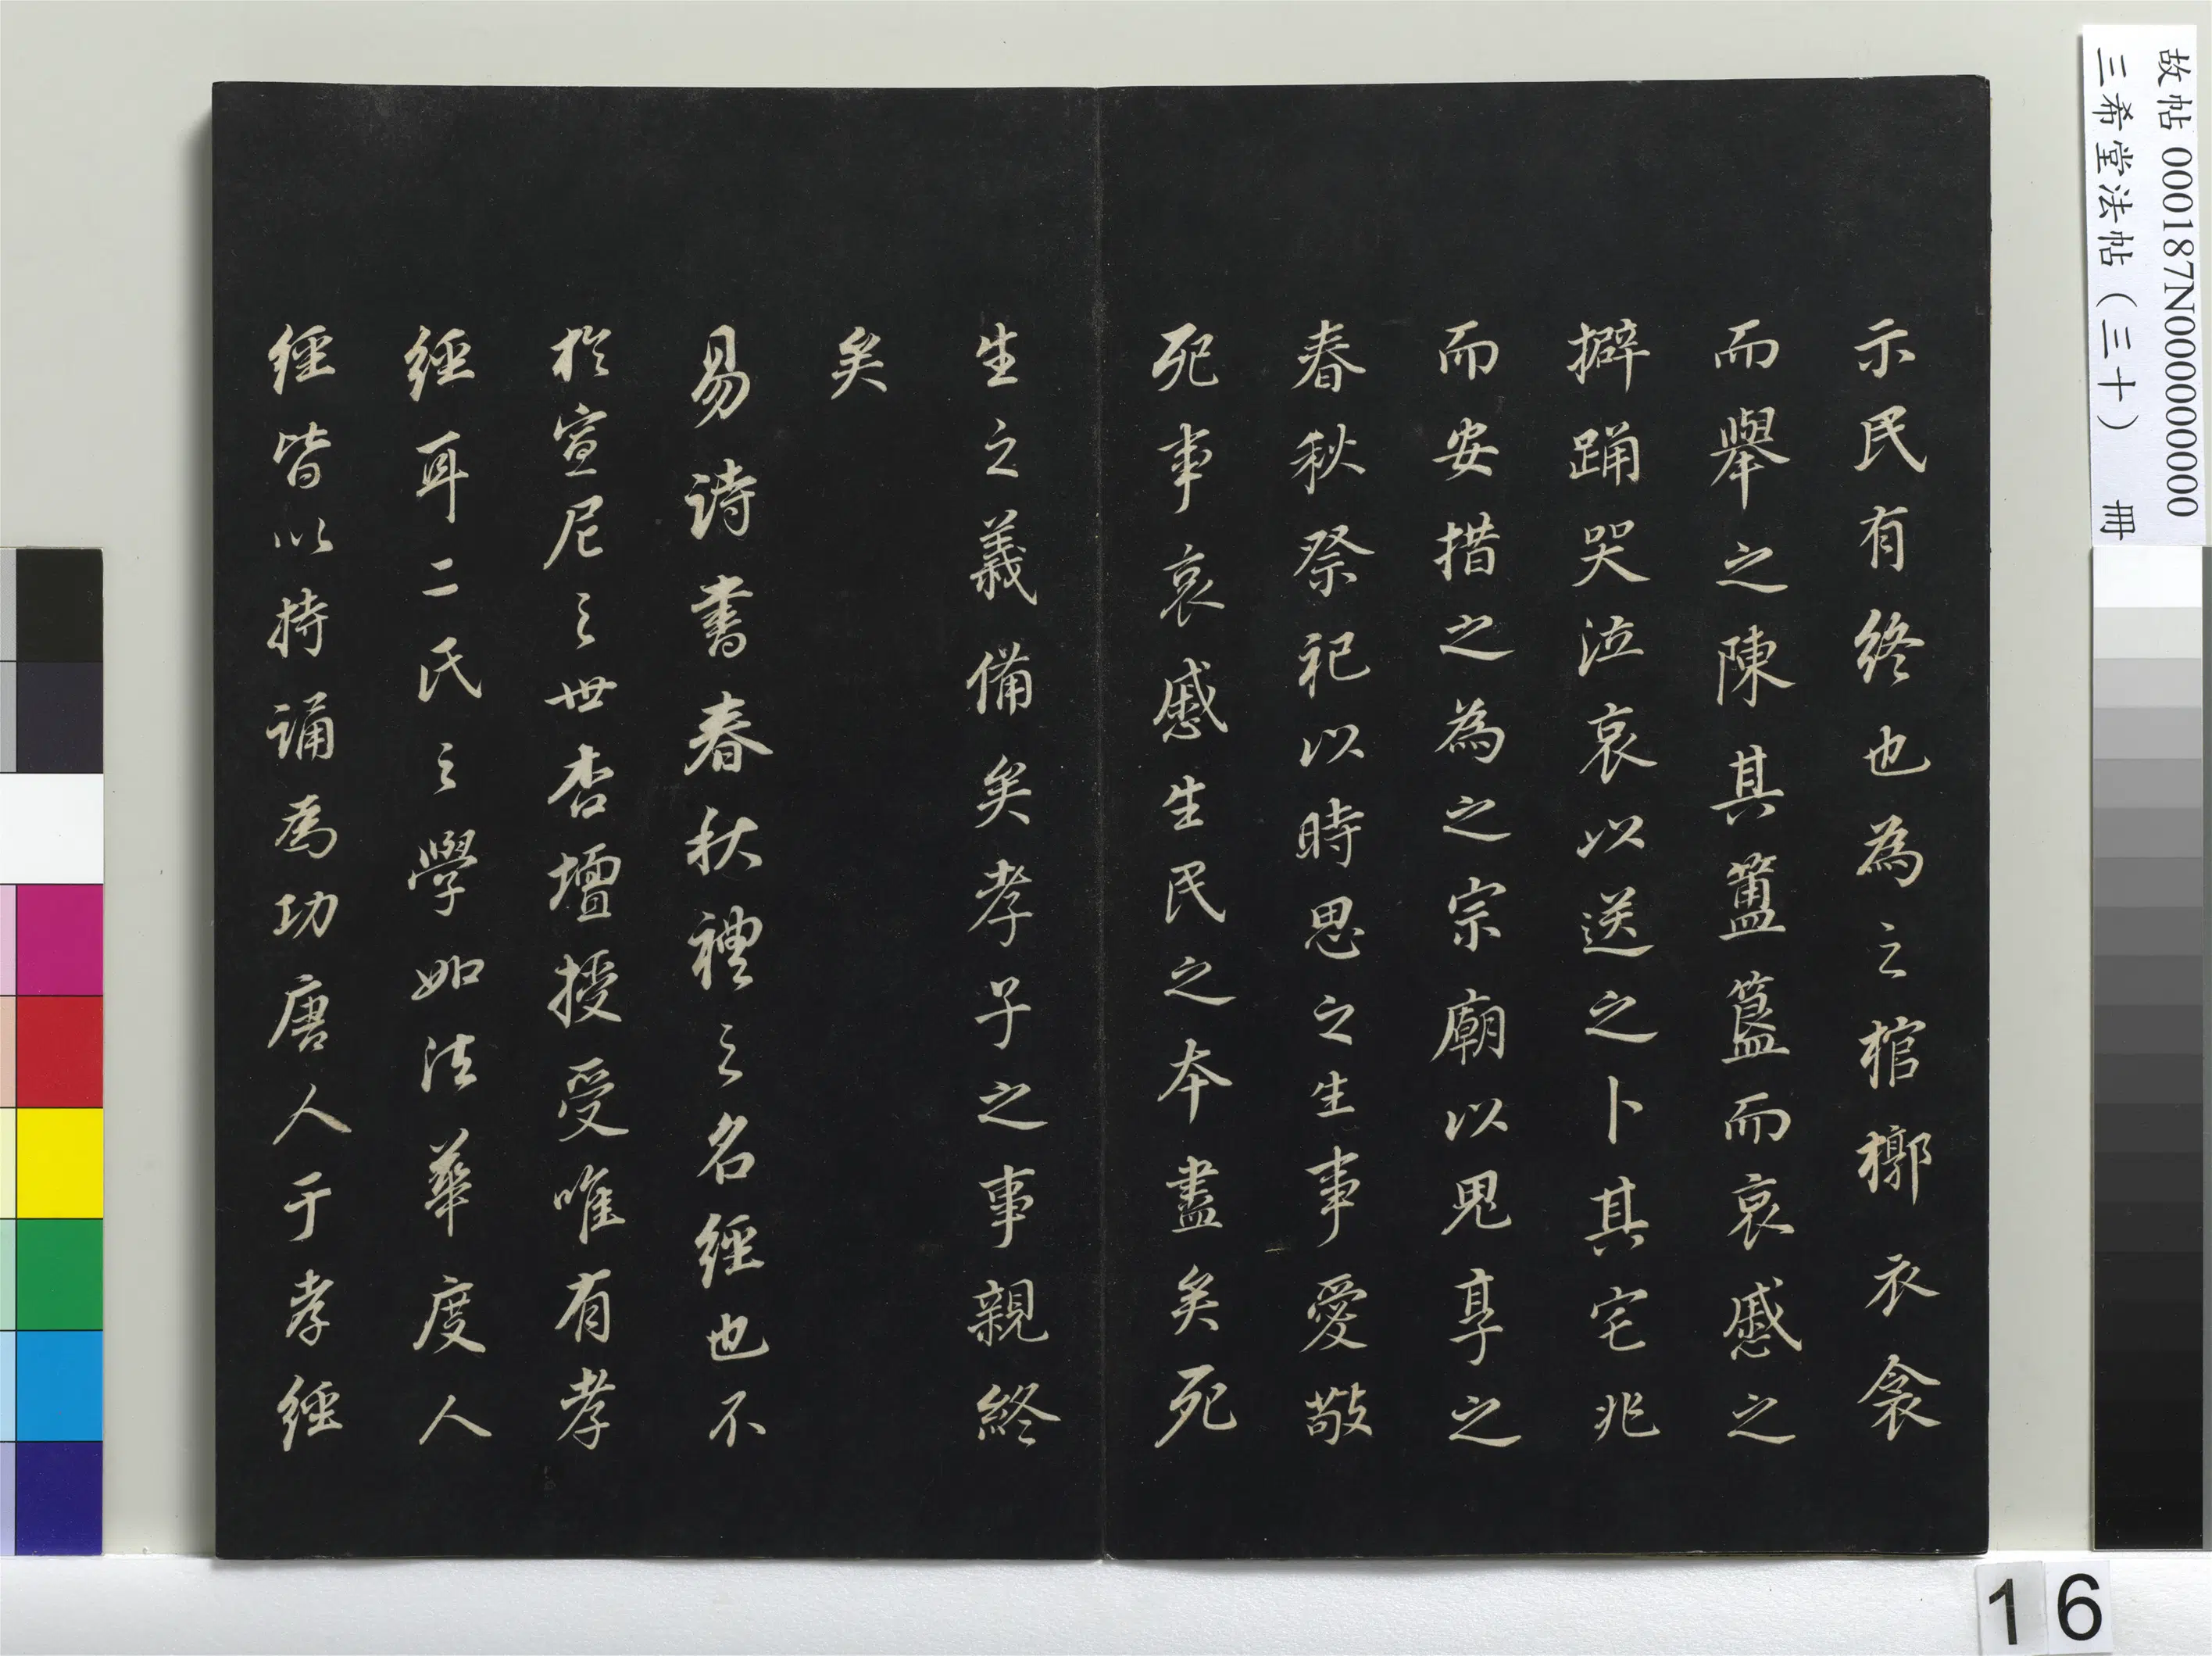 故帖 000187N000000000
三希堂法帖（三十） 冊
示民有終也為之棺槨衣衾
而舉之陳其簠簋而哀慼之
擗踊哭泣哀以送之卜其宅兆
而安措之為之宗廟以鬼享之
春秋祭祀以時思之生事愛敬
死事哀慼生民之本盡矣死
生之義備矣孝子之事親終
矣
易詩書春秋禮之名經也不
於宣尼之世杏壇授受唯有孝
經耳二氏之學如法華度人
經皆以持誦為功唐人于孝經
16